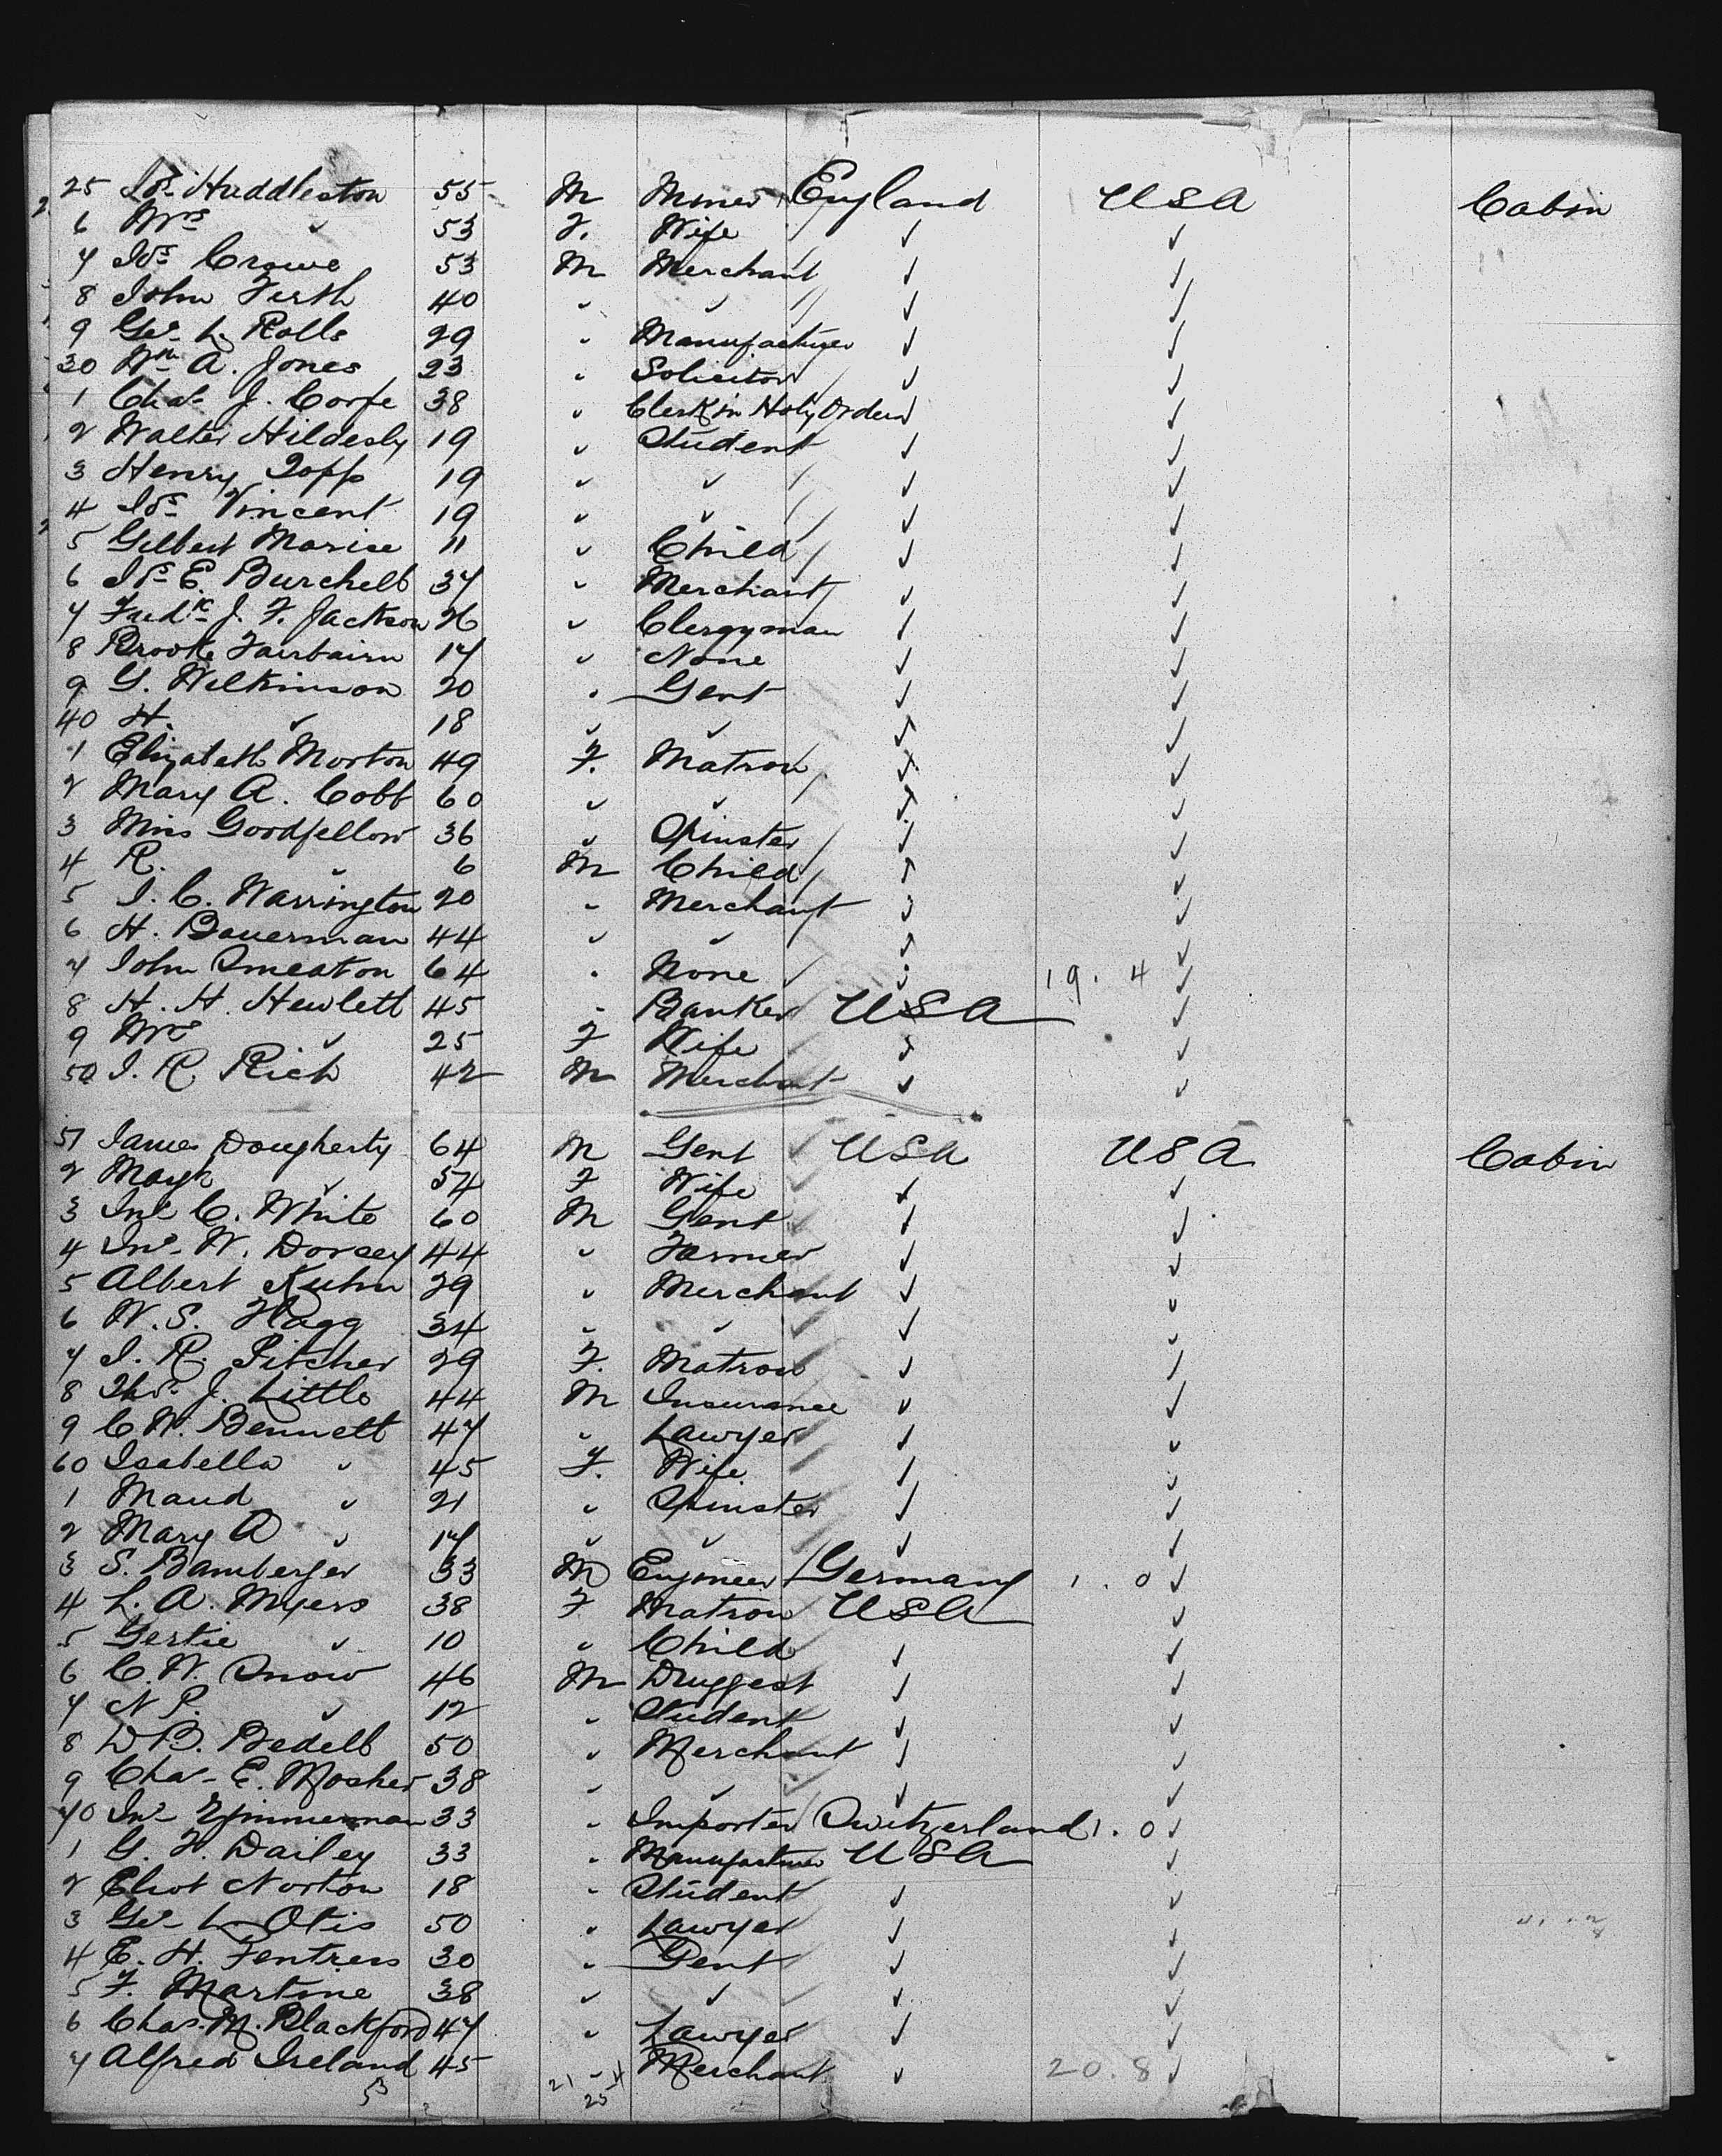 25 Jos. Huddleston 55 M Miner England USA Cabin
6 Mrs " 53 F. Wife " "
7 Jos. Crowe 53 M Merchant " "
8 John Firth 40 " " " "
9 Geo. L. Rolls 29 " Manufacturer " "
30 Wm A. Jones 23 " Solicitor " "
1 Chas J. Corfe 38 " Clerk in Holy Orders "
2 Walter Hildesly 19 " Student " "
3 Henry Topp 19 " " " "
4 Jos. Vincent 19 " " " "
5 Gilbert Marise 11 " Child " "
6 Js. E. Burchell 37 " Merchant " "
7 Fredk J. F. Jackson 26 " Clergyman " "
8 Brooke Fairbairn 17 " None " "
9 G. Wilkinson 20 " Gent " "
40 H. " 18 " " " "
1 Elizabeth Morton 49 F. Matron " "
2 Mary A. Cobb 60 " " " "
3 Miss Goodfellow 36 " Spinster " "
4 R. " 6 M Child " "
5 I. C. Warrington 20 " Merchant " "
6 H. Bauerman 44 " " " "
7 John Smeaton 64 " None " 19. 4 "
8 H. H. Hewlett 45 " Banker USA "
9 Mrs " 25 F Wife " "
50 I. R. Rich 42 M Merchant " "
51 James Dougherty 64 M Gent USA USA Cabin
2 " 54 F Wife " "
3 Jno C. White 60 M Gent " "
4 Jno. W. Dorsey 44 " Farmer " "
5 Albert Kuhn 29 " Merchant " "
6 W. S. Flagg 34 " " " "
7 I. R. Pitcher 29 F. Matron " "
8 Thos. J. Little 44 M Insurance " "
9 C. W. Bennett 47 " Lawyer " "
60 Isabella " 45 F. Wife " "
1 Maud " 21 " Spinster " "
2 Mary A " 17 " " " "
3 S. Bamberger 33 M Engineer Germany 1. 0 "
4 L. A. Myers 38 F Matron USA "
5 Gertie " 10 " Child " "
6 C. W. Snow 46 M Druggest " "
7 N P. " 12 " Student " "
8 D B. Bedell 50 " Merchant " "
9 Chas. E. Mosher 38 " " " "
70 Jno. Zimmerman 33 " Importer Switzerland 1. 0 "
1 G. H. Dailey 33 " Manufacturer USA "
2 Eliot Norton 18 " Student " "
3 Geo. L. Otis 50 " Lawyer " "
4 E. H. Fentress 30 " Gent " "
5 F. Martine 38 " " " "
6 Chas. M. Blackford 47 " Lawyer " "
7 Alfred Ireland 45 " Merchant " 20.8 "
53 21 25 4